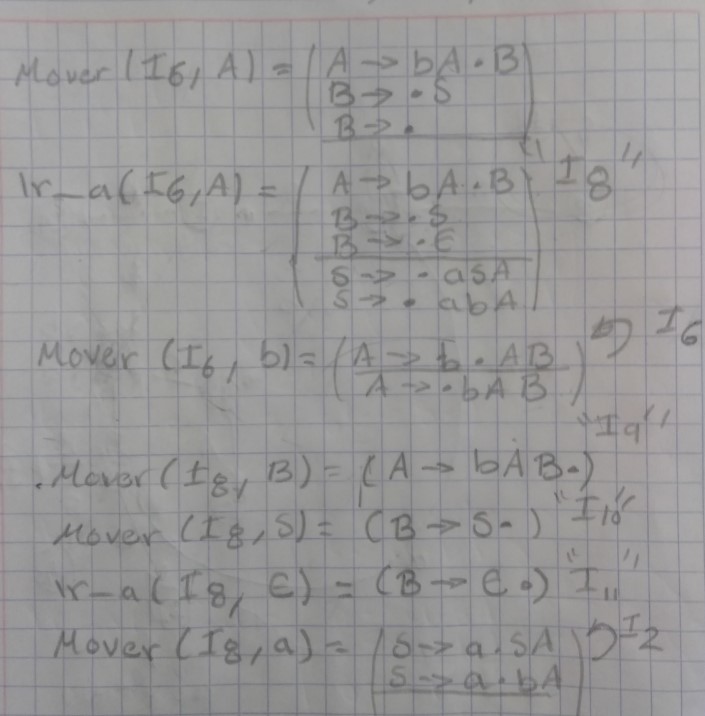 Mover (I6, A) = (A → bA·B
B → ·S
B → ·)
Ir_a(I6, A) = (A → bA·B "I8"
B → ·S
B → ·ε
S → ·aSA
S → ·abA)
Mover (I6, b) = (A → b·AB ) I6
A → ·bAB)
"I9"
.Mover (I8, B) = (A → bAB·)
Mover (I8, S) = (B → S·) "I10"
Ir_a (I8, ε) = (B → ε·) "I11"
Mover (I8, a) = (S → a·SA ) I2
S → a·bA